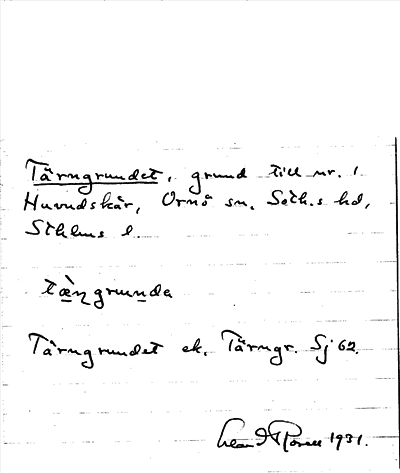 Tärngrundet, grund till nr. 1
Huvudskär, Ornö sn. Soth.s hd,
Sthlms l.
tæ̀ŋgrunda
Tärngrundet ek. Tärngr. Sj 62.
1931.